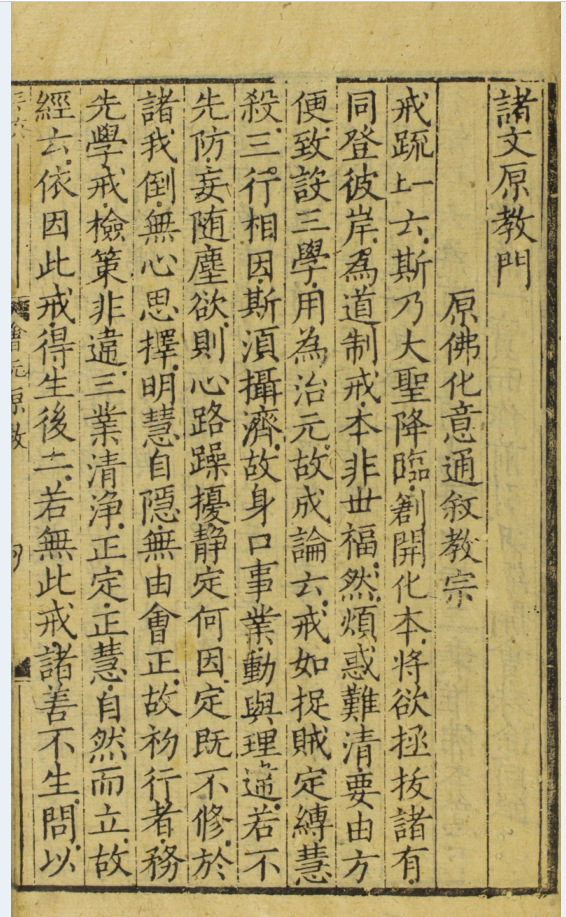 諸文原教門
原佛化意通叙教宗
戒䟽上一云斯乃大聖降臨創開化本將欲拯拔諸有
同登彼岸爲道制戒本非世福然煩惑難清要由方
便致設三學用為治元故成論云戒如捉賊定縛慧
殺三行相因斯湏攝濟故身口事業動與理違若不
先防妄随塵欲則心路躁擾静定何因定既不修於
諸我倒無心思擇明慧自隱無由會正故初行者務
先學戒檢策非違三業清净正定正慧自然而立故
經云依因此戒得生後二若無此戒諸善不生問以